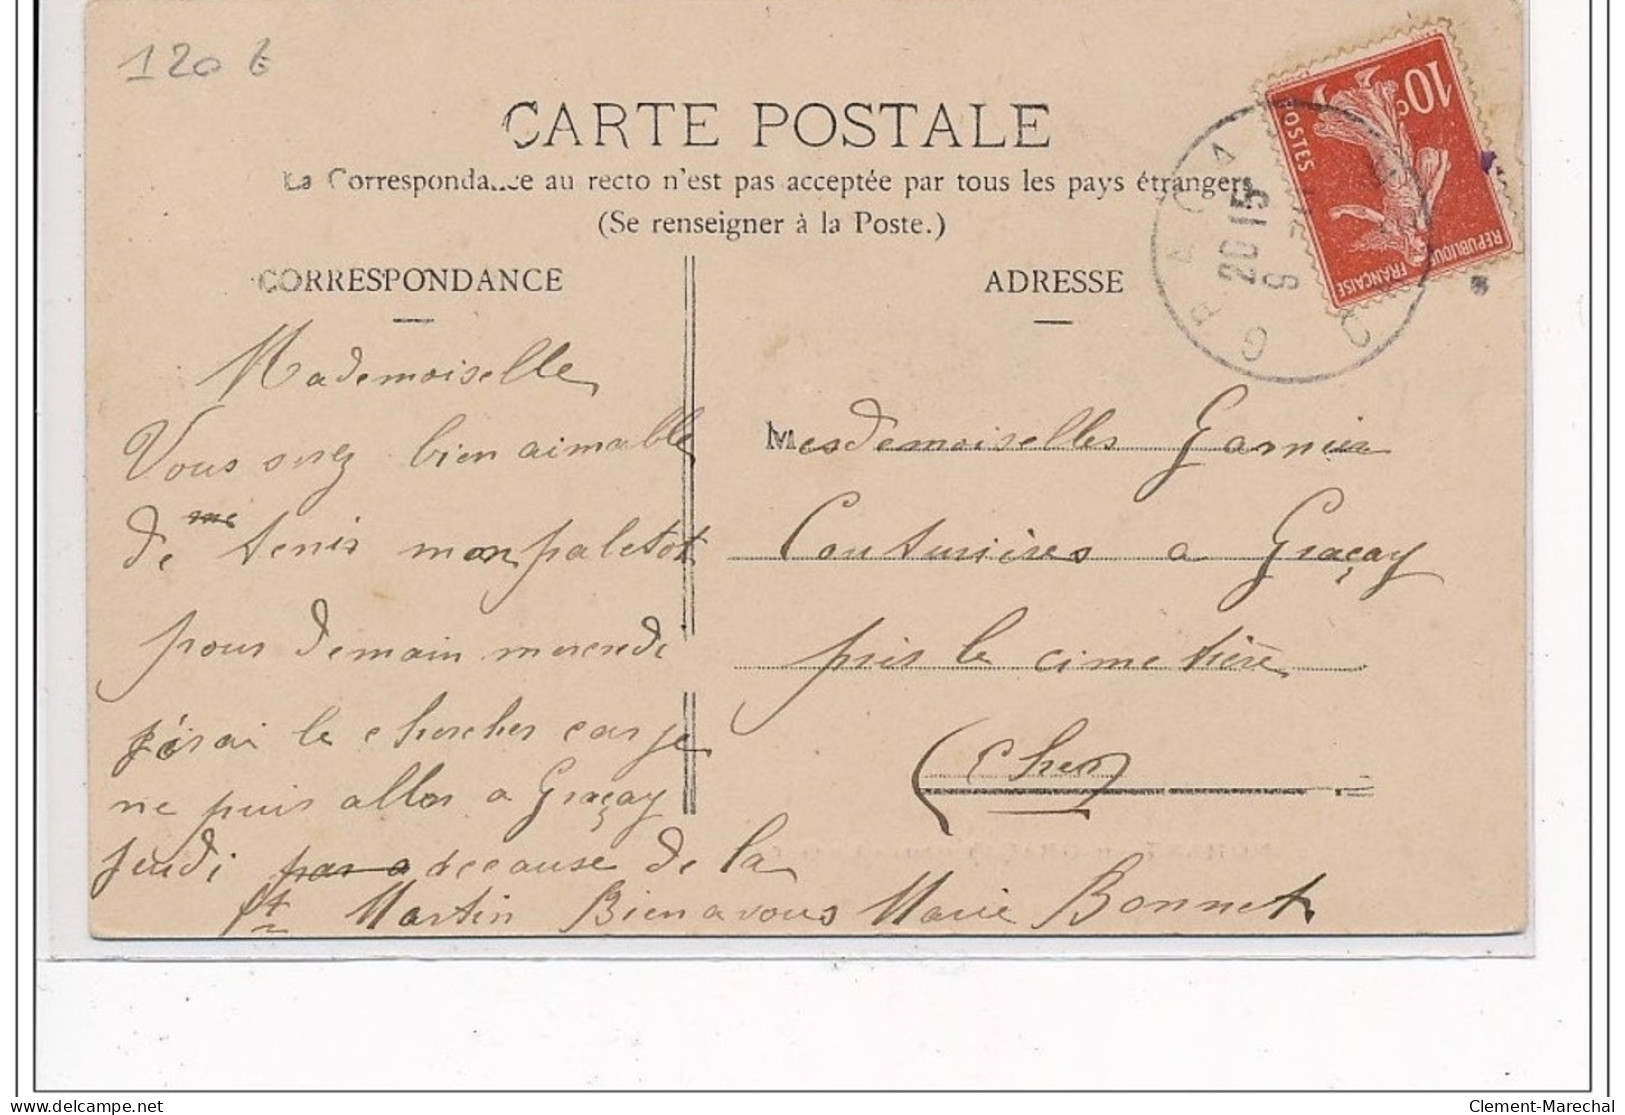 120 €
CARTE POSTALE
La Correspondance au recto n'est pas acceptée par tous les pays étrangers
(Se renseigner à la Poste.)
CORRESPONDANCE
ADRESSE
10c
POSTES
REPUBLIQUE
FRANÇAISE
GRAÇA
20 15
9
Mademoiselle
Vous serez bien aimable
de me tenir mon paletot
pour demain mercredi
j'irai le chercher car je
ne puis aller a Graçay
jeudi pas a cause de la
St Martin Bien a vous Marie Bonnet
Mesdemoiselles Garnier
Couturières a Graçay
près le cimetière
(Cher)
Clement-Marechal